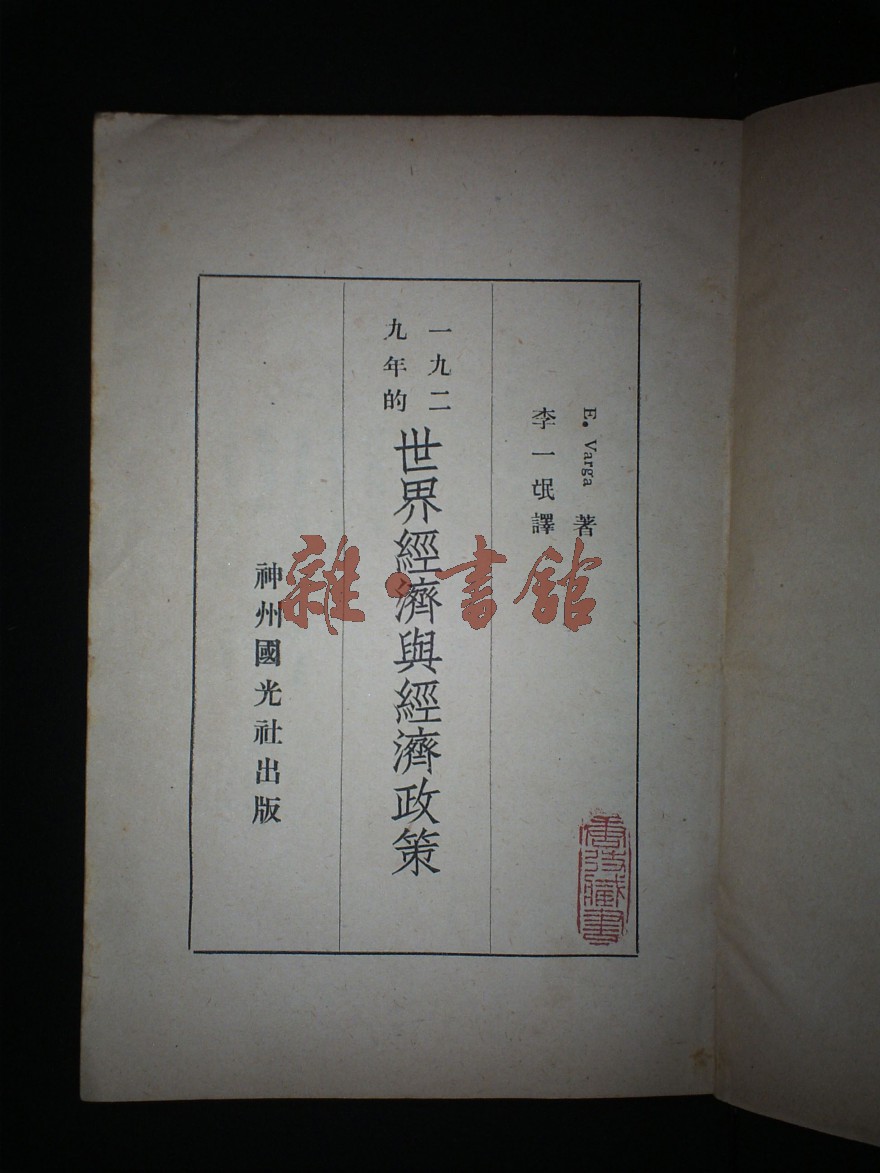 E. Varga 著
李一氓譯
一九二
九年的
世界經濟與經濟政策
神州國光社出版
雜·書館